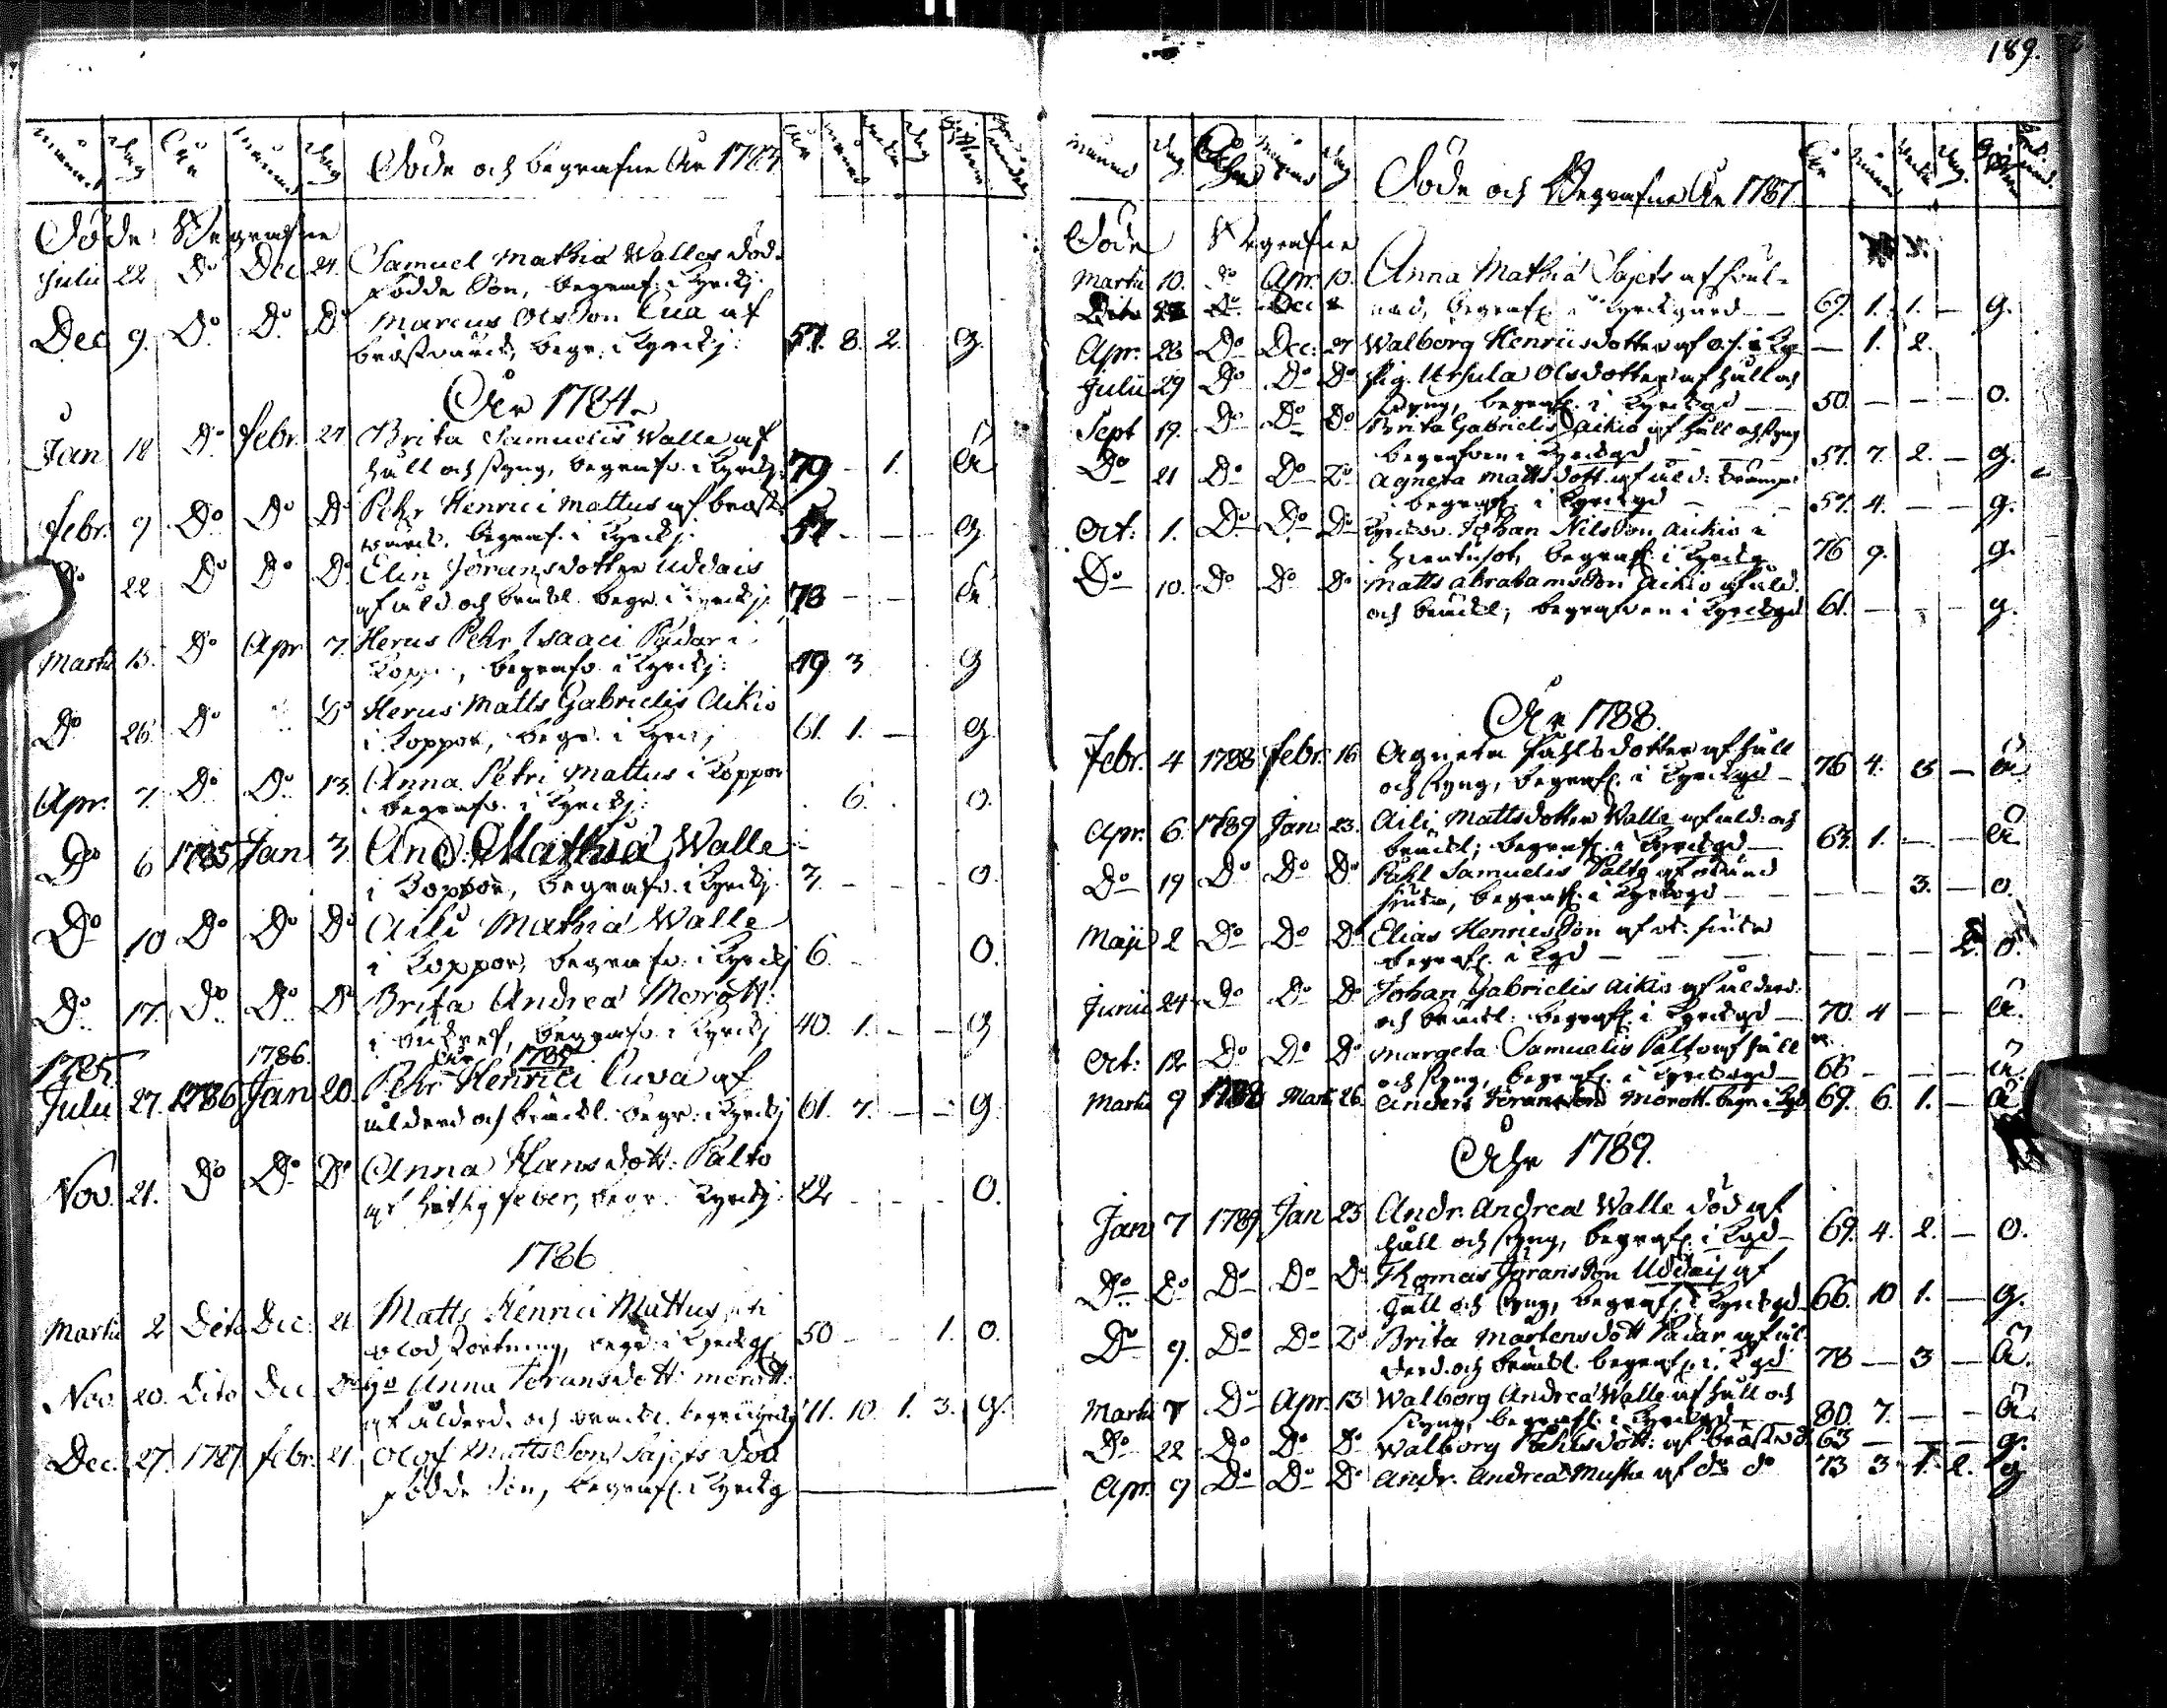 189.
Månad Dag År Månad Dag Döde och begrafne År 1783 År Månad Dag
Döde Begrafne
Julii 22 Do Dec 27. Samuel Mathiæ Walles död-
födde Son, begraf. i Kyrckj.
Dec 9. Do Do Do Marcus Olsson Cua af
bröstvärck, begr. i Kyrckj. 57. 8. 2. g.
År 1784
Jan 18 Do Febr. 27 Brita Samuelis Walle af
håll och styng, begrafv. i Kyrckj. 79 - 1. Ä
Febr. 9 Do Do Do Pehr Henrici Mattus af bröst-
värck, begraf. i Kyrckj. 57 - - - g.
Do 22 Do Do Do Elin Joransdotter Uddais
af åld. och bräckl. begr. i Kyrckj. 78 - - Ä.
Martii 15. Do Apr 7. Herus Pehr Isaaci Padar i
Koppor, begrafv. i Kyrckj. 49 3 g
Do 26. Do Do Herus Matts Gabrielis Aikio
i Koppor, begr. i Kyrckj 61. 1. - g.
Apr. 7. Do Do 13. Anna Petri Mattus i Koppor
begrafv. i Kyrckj. 6. O.
Do 6 1785 Jan 3 And. Mathiæ Walle
i Koppor, begrafv. i Kyrckj. 3. - - - O.
Do 10 Do Do Do Aili Mathiæ Walle
i Koppor, begrafv. i Kyrckj 6. - O.
Do 17. Do Do Do Brita Andreæ Morott:
i begrafv. i Kyrckj 40. 1. - - g
1785 1786. År 1785
Julii 27. 1786 Jan 20. Pehr Henrici Cuva af
ålderd och bräckl. begr. i Kyrckj 61. 7. - - g.
Nov. 21. Do Do Do Anna Hansdott: Palto
af hetsig feber, begr. Kyrckj. 22 - - - O.
1786
Martii 2 Dito Dec. 21 Matts Henrici Mattus
blod Stortning, begr. i Kyrckgd. 50 - - 1. O.
Nov. 20. Dito Dec Do Anna Joransdott: Morott:
af ålderd. och bräckl. begr. i Kyrckj 71. 10. 1. 3. g.
Dec. 27. 1787 Febr. 21. Olof Mattsson Sajets död
födde Son, begraf. i Kyrckg
Månad Dag Månad Dag Döde och Begrafne År 1787. År
Döde Begrafne
Martii 10. Do Apr. 10. Anna Mathiæ Sajets af
begraf. i Kyrckgård - 69. 1. 1. - g.
Apr. 28 Do Dec: 27 Walborg Henricsdotter af i Kg - 1. 2.
Julii 29 Do Do Do Pig. Ursula Olsdotter af håll och
styng, begraf. i Kyrckgd - 50. - - - O.
Sept 19. Do Do Do Brita Gabrielis Aikio af håll och styng
begrafven i Kyrckgd - 57. 7. 2. - g.
Do 21 Do Do Do Agneta Mattsdott. af åld:
begraf. i Kyrckgd - 57. 4. - - g.
Oct: 1. Do Do Do Johan Nilsson Aikio
begraf. i Kyrckg. 76 9. g.
Do 10. Do Do Do Matts Abrahamsson Aikio af åld.
och bräckl; begrafven i Kyrckgd 61. - - - g.
År 1788.
Febr. 4 1788 Febr. 16 Agneta Pahlsdotter af håll
och styng, begraf. i Kyrckgd - 76 4. 3 - Ä
Apr. 6. 1789 Jan 23. Aili Mattsdotter Walle af åld: och
bräckl; begraf. i Kyrckgd - 63. 1. - - Ä.
Do 19 Do Do Do Pahl Samuelis Palto af
begraf. i Kyrckgd - - - 3. - O.
Maji 2 Do Do Do Elias Henricsson af
begraf. i Kgd - - - - 2. O.
Junii 24 Do Do Do Johan Gabrielis Aikio af ålderd.
och bräckl: begraf. i Kyrckgd - 70. 4 - - Ä.
Oct: 12 Do Do Do Margeta Samuelis Palto af håll
och styng, begraf. i Kyrckgd - 66 - - - Ä.
Martii 9 1788 Mart 26. Anders Joransson Morott. begr. i Kgd 69. 6. 1. - Ä
Åhr 1789.
Jan 7 1789 Jan 23 Andr. Andreæ Walle död af
håll och styng, begraf. i Kgd - 69. 4. 2. - O.
Do Do Do Do Do Thomas Joransson Uddaij af
håll och styng, begraf. i Kyrckgd 66. 10 1. - g.
Do 9. Do Do Do Brita Martensdott Padar af ål-
derd. och bräckl. begraf. i Kgd 78 - 3 - Ä.
Martii 7 Do Apr. 13 Walborg Andreæ Walle af håll och
styng, begraf. i Kyrckgd - 80. 7. - - Ä.
Do 22 Do Do Do Walborg Pahlsdott: af bröstvd. 63 - - - g.
Apr. 9 Do Do Do Andr. Andreæ Musta af do do 73 3 1. 2. g